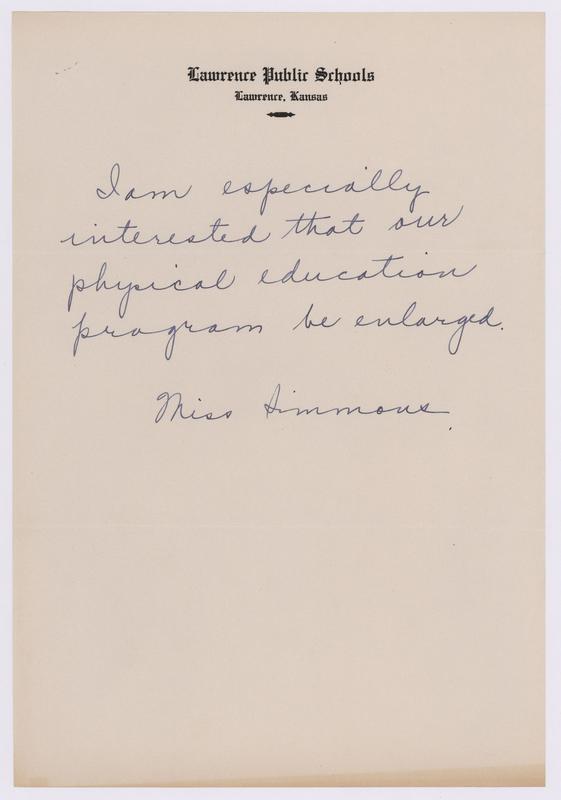 Lawrence Public Schools
Lawrence, Kansas
I am especially
interested that our
physical education
program be enlarged.
Miss Simmons.